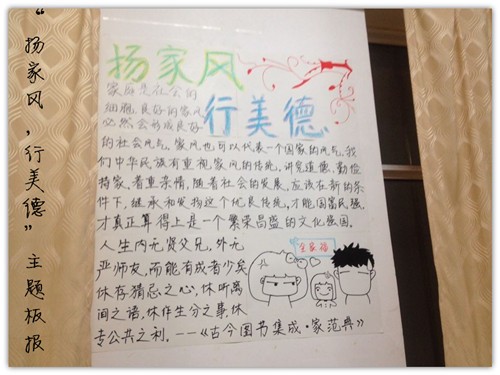 “扬家风，行美德”主题板报
扬家风
行美德
家庭是社会的
细胞，良好的家风
必然会形成良好
的社会风气，家风也可以代表一个国家的风气，我
们中华民族有重视家风的传统，讲究道德、勤俭
持家、看重亲情，随着社会的发展，应该在新的条
件下，继承和发扬这个优良传统，才能国富民强。
才真正算得上是一个繁荣昌盛的文化强国。
人生内无贤父兄，外无
严师友，而能有成者少矣
休存猜忌之心，休听离
间之语，休作生分之事，休
专公共之利．——《古今图书集成·家范典》
全家福